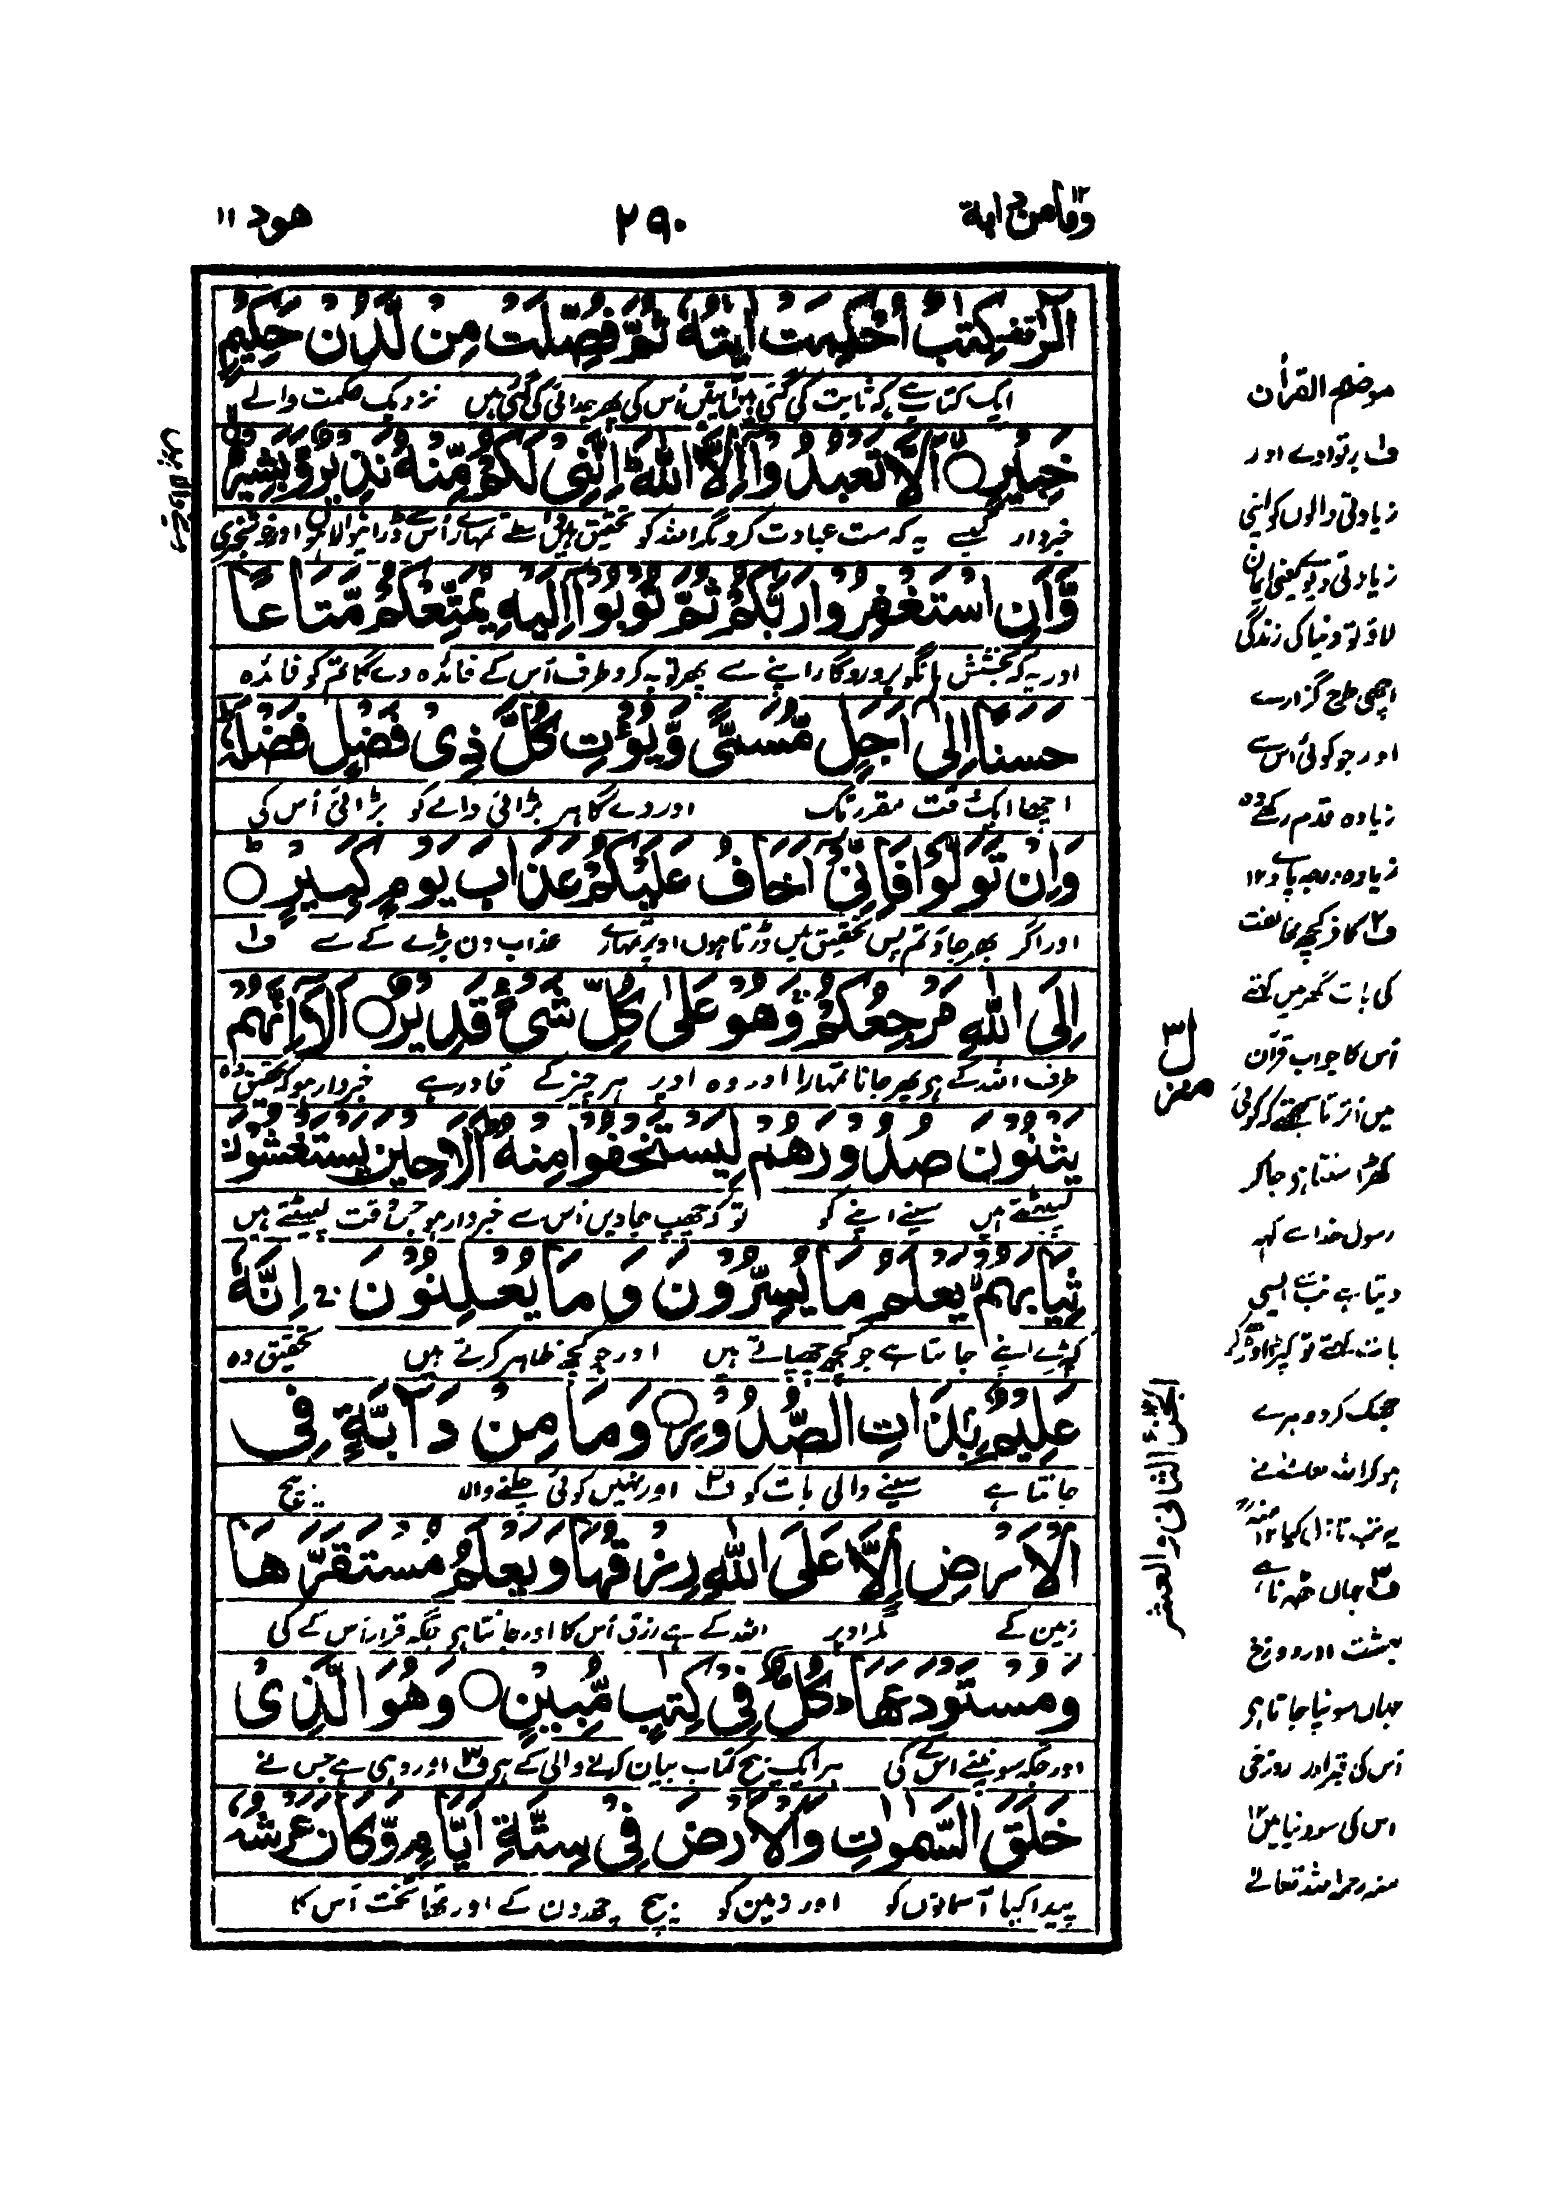 وما من دابة ۱۲
۲۹۰
هود ۱۱
الٓرٰ كِتٰبٌ اُحْكِمَتْ اٰيٰتُهٗ ثُمَّ فُصِّلَتْ مِنْ لَّدُنْ حَكِيْمٍ
ایک کتاب ہے کہ ثابت کی گئی ہیں آیتیں اُس کی پھر جدائی کی گئی ہیں نزدیک حکمت والے
خَبِيْرٍ ○ اَلَّا تَعْبُدُوْٓا اِلَّا اللّٰهَ ؕ اِنَّنِيْ لَكُمْ مِّنْهُ نَذِيْرٌ وَّبَشِيْرٌ
خبردار کیسے یہ کہ مت عبادت کرو مگر اللہ کو تحقیق میں واسطے تمہارے اُس سے ڈرانیوالا ہوں اور خوشخبری
دینے والا ہوں
وَّاَنِ اسْتَغْفِرُوْا رَبَّكُمْ ثُمَّ تُوْبُوْٓا اِلَيْهِ يُمَتِّعْكُمْ مَّتَاعًا
اور یہ کہ بخشش مانگو پروردگار اپنے سے پھر توبہ کرو طرف اُس کے فائدہ دے گا تم کو فائدہ
حَسَنًا اِلٰٓى اَجَلٍ مُّسَمًّى وَّيُؤْتِ كُلَّ ذِيْ فَضْلٍ فَضْلَهٗ ؕ
اچھا ایک وقت مقرر تک اور دے گا ہر بڑائی والے کو بڑائی اُس کی
وَاِنْ تَوَلَّوْا فَاِنِّيْٓ اَخَافُ عَلَيْكُمْ عَذَابَ يَوْمٍ كَبِيْرٍ ○
اور اگر پھر جاؤ تم پس تحقیق میں ڈرتا ہوں اوپر تمہارے عذاب دن بڑے کے سے ف۱
اِلَى اللّٰهِ مَرْجِعُكُمْ ۚ وَهُوَ عَلٰى كُلِّ شَيْءٍ قَدِيْرٌ ○ اَلَآ اِنَّهُمْ
طرف اللہ کے ہی پھر جانا تمہارا اور وہ اوپر ہر چیز کے قادر ہے خبردار ہو کہ تحقیق وہ
يَثْنُوْنَ صُدُوْرَهُمْ لِيَسْتَخْفُوْا مِنْهُ ؕ اَلَا حِيْنَ يَسْتَغْشُوْنَ
لپیٹتے ہیں سینے اپنے کو تو کہ چھپ جاویں اُس سے خبردار ہو جس وقت لپیٹتے ہیں
ثِيَابَهُمْ ۙ يَعْلَمُ مَا يُسِرُّوْنَ وَمَا يُعْلِنُوْنَ ۚ اِنَّهٗ
کپڑے اپنے جانتا ہے جو کچھ چھپاتے ہیں اور جو کچھ ظاہر کرتے ہیں تحقیق وہ
عَلِيْمٌۢ بِذَاتِ الصُّدُوْرِ ○ وَمَا مِنْ دَآبَّةٍ فِي
جانتا ہے سینے والی بات کو ف۲ اور نہیں کوئی چلنے والا بیچ
الْاَرْضِ اِلَّا عَلَى اللّٰهِ رِزْقُهَا وَيَعْلَمُ مُسْتَقَرَّهَا
زمین کے مگر اوپر اللہ کے ہے رزق اُس کا اور جانتا ہی جگہ قرار اُس کے کی
وَمُسْتَوْدَعَهَا ؕ كُلٌّ فِيْ كِتٰبٍ مُّبِيْنٍ ○ وَهُوَ الَّذِيْ
اور جگہ سونپنے اُس کے کی ہر ایک بیچ کتاب بیان کرنے والی کے ہی ف۳ اور وہی ہے جس نے
خَلَقَ السَّمٰوٰتِ وَالْاَرْضَ فِيْ سِتَّةِ اَيَّامٍ وَّكَانَ عَرْشُهٗ
پیدا کیا آسمانوں کو اور زمین کو بیچ چھ دن کے اور تھا تخت اُس کا
منزل ۳
الجزء الثانی والعشر
موضح القرآن
ف۱ برتوادے اور
زیادتی والوں کو اپنی
زیادتی دیوے یعنی ایمان
لاؤ تو دنیا کی زندگی
اچھی طرح گزارے
اور جو کوئی اس سے
زیادہ قدم رکھے وہ
زیادہ درجہ پاوے ۱۲
ف۲ کافر کچھ مخالفت
کی بات گھر میں کہتے
اُس کا جواب قرآن
میں اُترتا سمجھتے کہ کوئی
کھڑا سنتا ہی جا کر
رسول خدا سے کہہ
دیتا ہے تب ایسی
بات کہتے تو کپڑا اوڑھ کر
جھک کر دوہرے
ہو کر اللہ تعالیٰ نے
یہ تب نازل کیا ۱۲ منہ رح
ف۳ جہاں ٹھہرنا ہے
بہشت اور دوزخ
جہاں سونپا جاتا ہی
اُس کی قبر اور
اس کی سو دنیا میں ۱۲
منہ رحمہ اللہ تعالےٰ